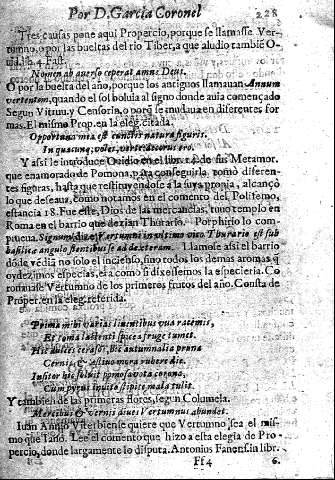 Por D. Garcia Coronel
228
Tres causas pone aqui Propercio, porque se llamasse Ver-
tumno, o por las bueltas del rio Tiber, a que aludio tambiẽ O-
uid. lib. 4. Fast.
Nomen ab auerso ceperat amne Deus.
O por la buelta del año, porque los antiguos llamauan Annum
vertentem, quando el sol boluia al signo donde auia començado
Segun Vitruu. y Censorio, o porq̃ se mudaua en diferentes for
mas. El mismo Prop. en la eleg. citada.
Opportuna mea est cunctis natura figuris.
In quamcunque, voles, verte, decorus ero.
Y assi le introduce Ouidio en el libr. 14. de sus Metamor.
que enamorado de Pomona, para conseguirla tomò diferen-
tes figuras, hasta que restituyendose à la suya propia, alcançò
lo que deseaua, como notamos en el comento del Polifemo,
estancia 18. Fue este, Dios de las mercancias, tuuo templo en
Roma en el barrio que dezian Thurario. Porphirio lo com-
prueua. Signum, dize, Vertumni in vltimo vico Thurario est sub
basilicæ angulo flectentibus se ad dexteram. Llamose assi el barrio
dõde vẽdiã no solo el incienso, sino todos los demas aromas, q̃
oy dezimos especias, era como si dixessemos la especieria. Co
ronauase Vertumno de los primeros frutos del año. Consta de
Proper. en la eleg. referida.
Prima mihi varias liuentibus vua racemis,
Et coma lactenti spicea fruge tumet.
Hic dulces cerasos, hic autumnalia pruna
Cernis, & æstiuo mora rubere die.
Insitor hic soluit pomosa vota corona,
Cum pyrus inuito stipite mala tulit.
Y tambien de las primeras flores, segun Columela.
Mercibus & vernis diues Vertumnus abundet.
Iuan Annio Viterbiense quiere que Vertumno, sea el mis-
mo que Iano. Lee el comento que hizo a esta elegia de Pro-
percio, donde largamente lo disputa. Antonius Fanens. in libr.
Ff4
6.